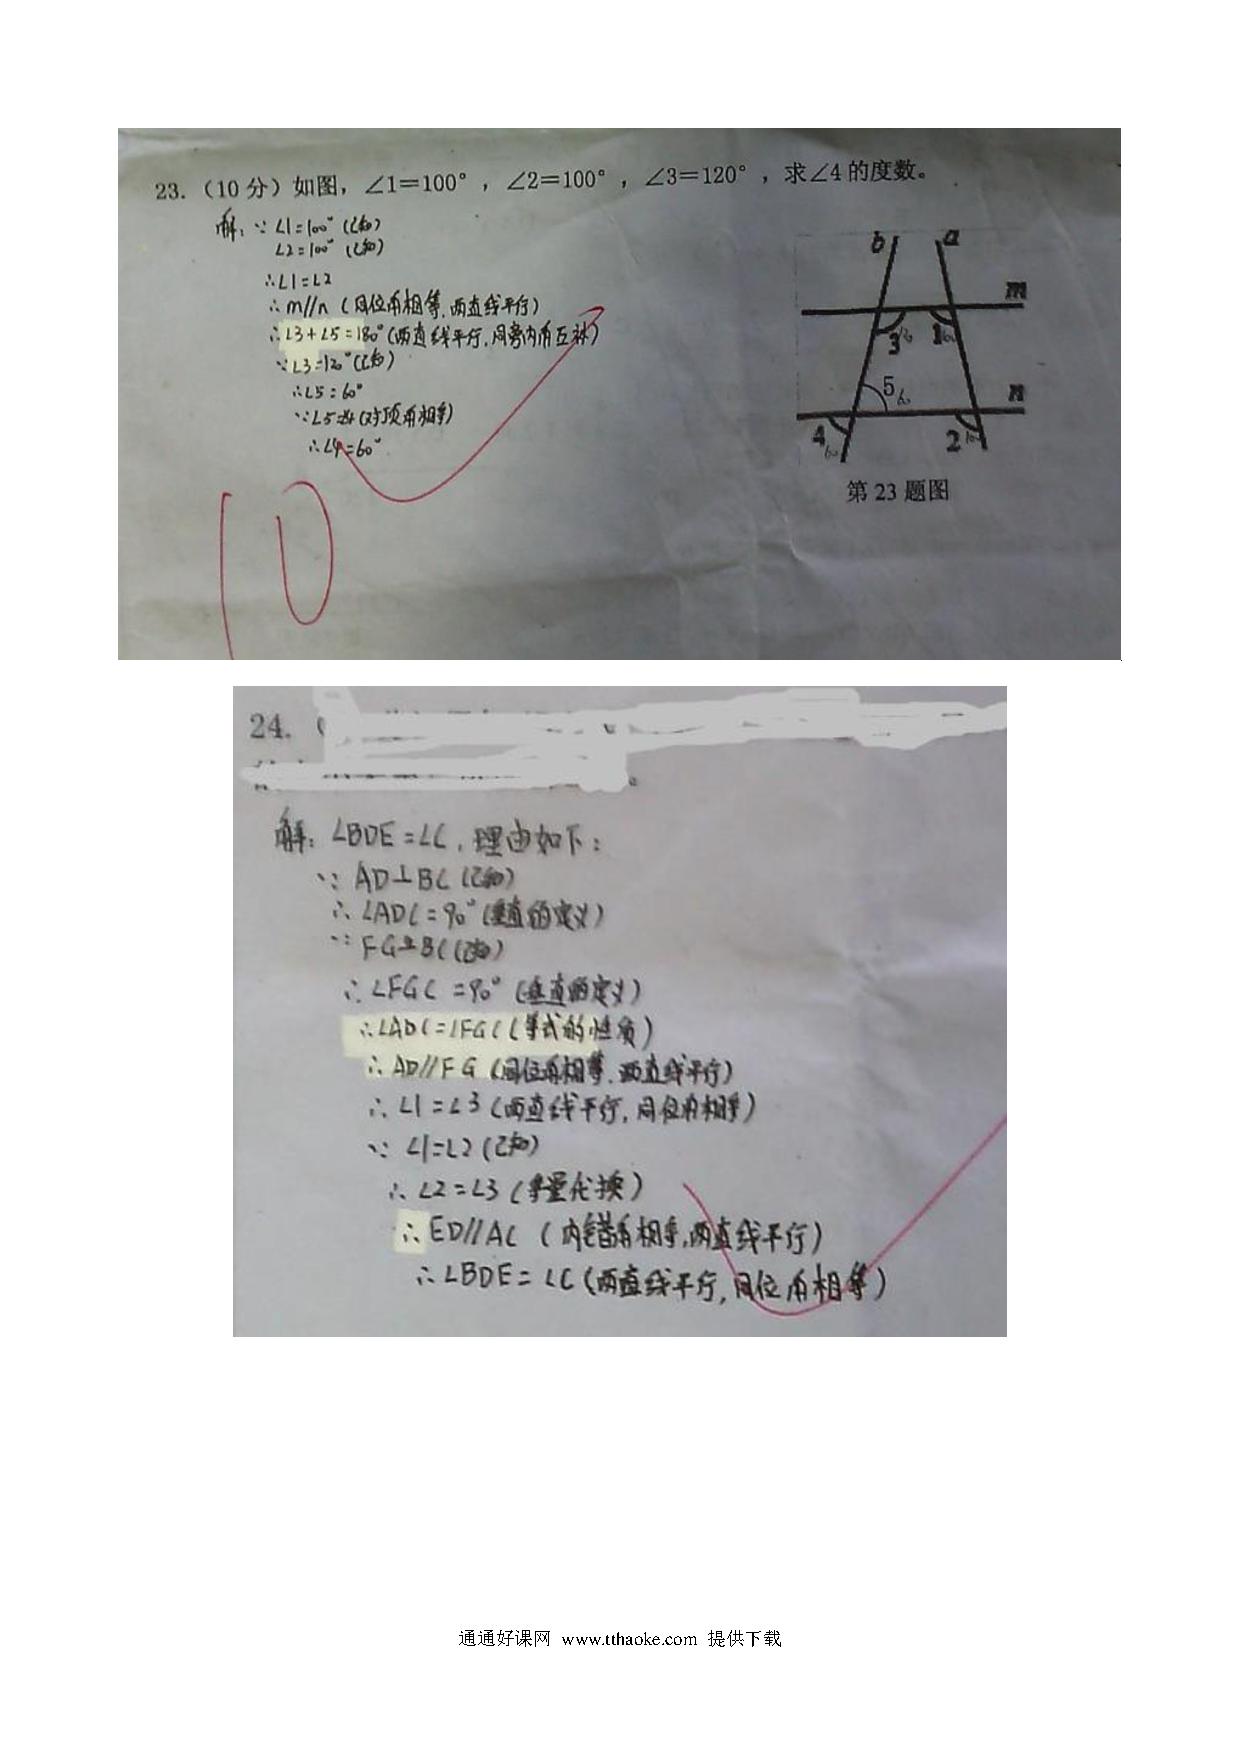 23.（10分）如图，∠1＝100°，∠2＝100°，∠3＝120°，求∠4的度数。
解：∵∠1=100°（已知）
∠2=100°（已知）
∴∠1=∠2
∴m//n（同位角相等，两直线平行）
∴∠3+∠5=180°（两直线平行，同旁内角互补）
∵∠3=120°（已知）
∴∠5=60°
∵∠5=∠4（对顶角相等）
∴∠4=60°
10
b a
m
3 1
5
n
4 2
第23题图
24.（
解：∠BDE=∠C，理由如下：
∵AD⊥BC（已知）
∴∠ADC=90°（垂直的定义）
∵FG⊥BC（已知）
∴∠FGC=90°（垂直的定义）
∴∠ADC=∠FGC（等式的性质）
∴AD//FG（同位角相等，两直线平行）
∴∠1=∠3（两直线平行，同位角相等）
∵∠1=∠2（已知）
∴∠2=∠3（等量代换）
∴ED//AC（内错角相等，两直线平行）
∴∠BDE=∠C（两直线平行，同位角相等）
通通好课网 www.tthaoke.com 提供下载